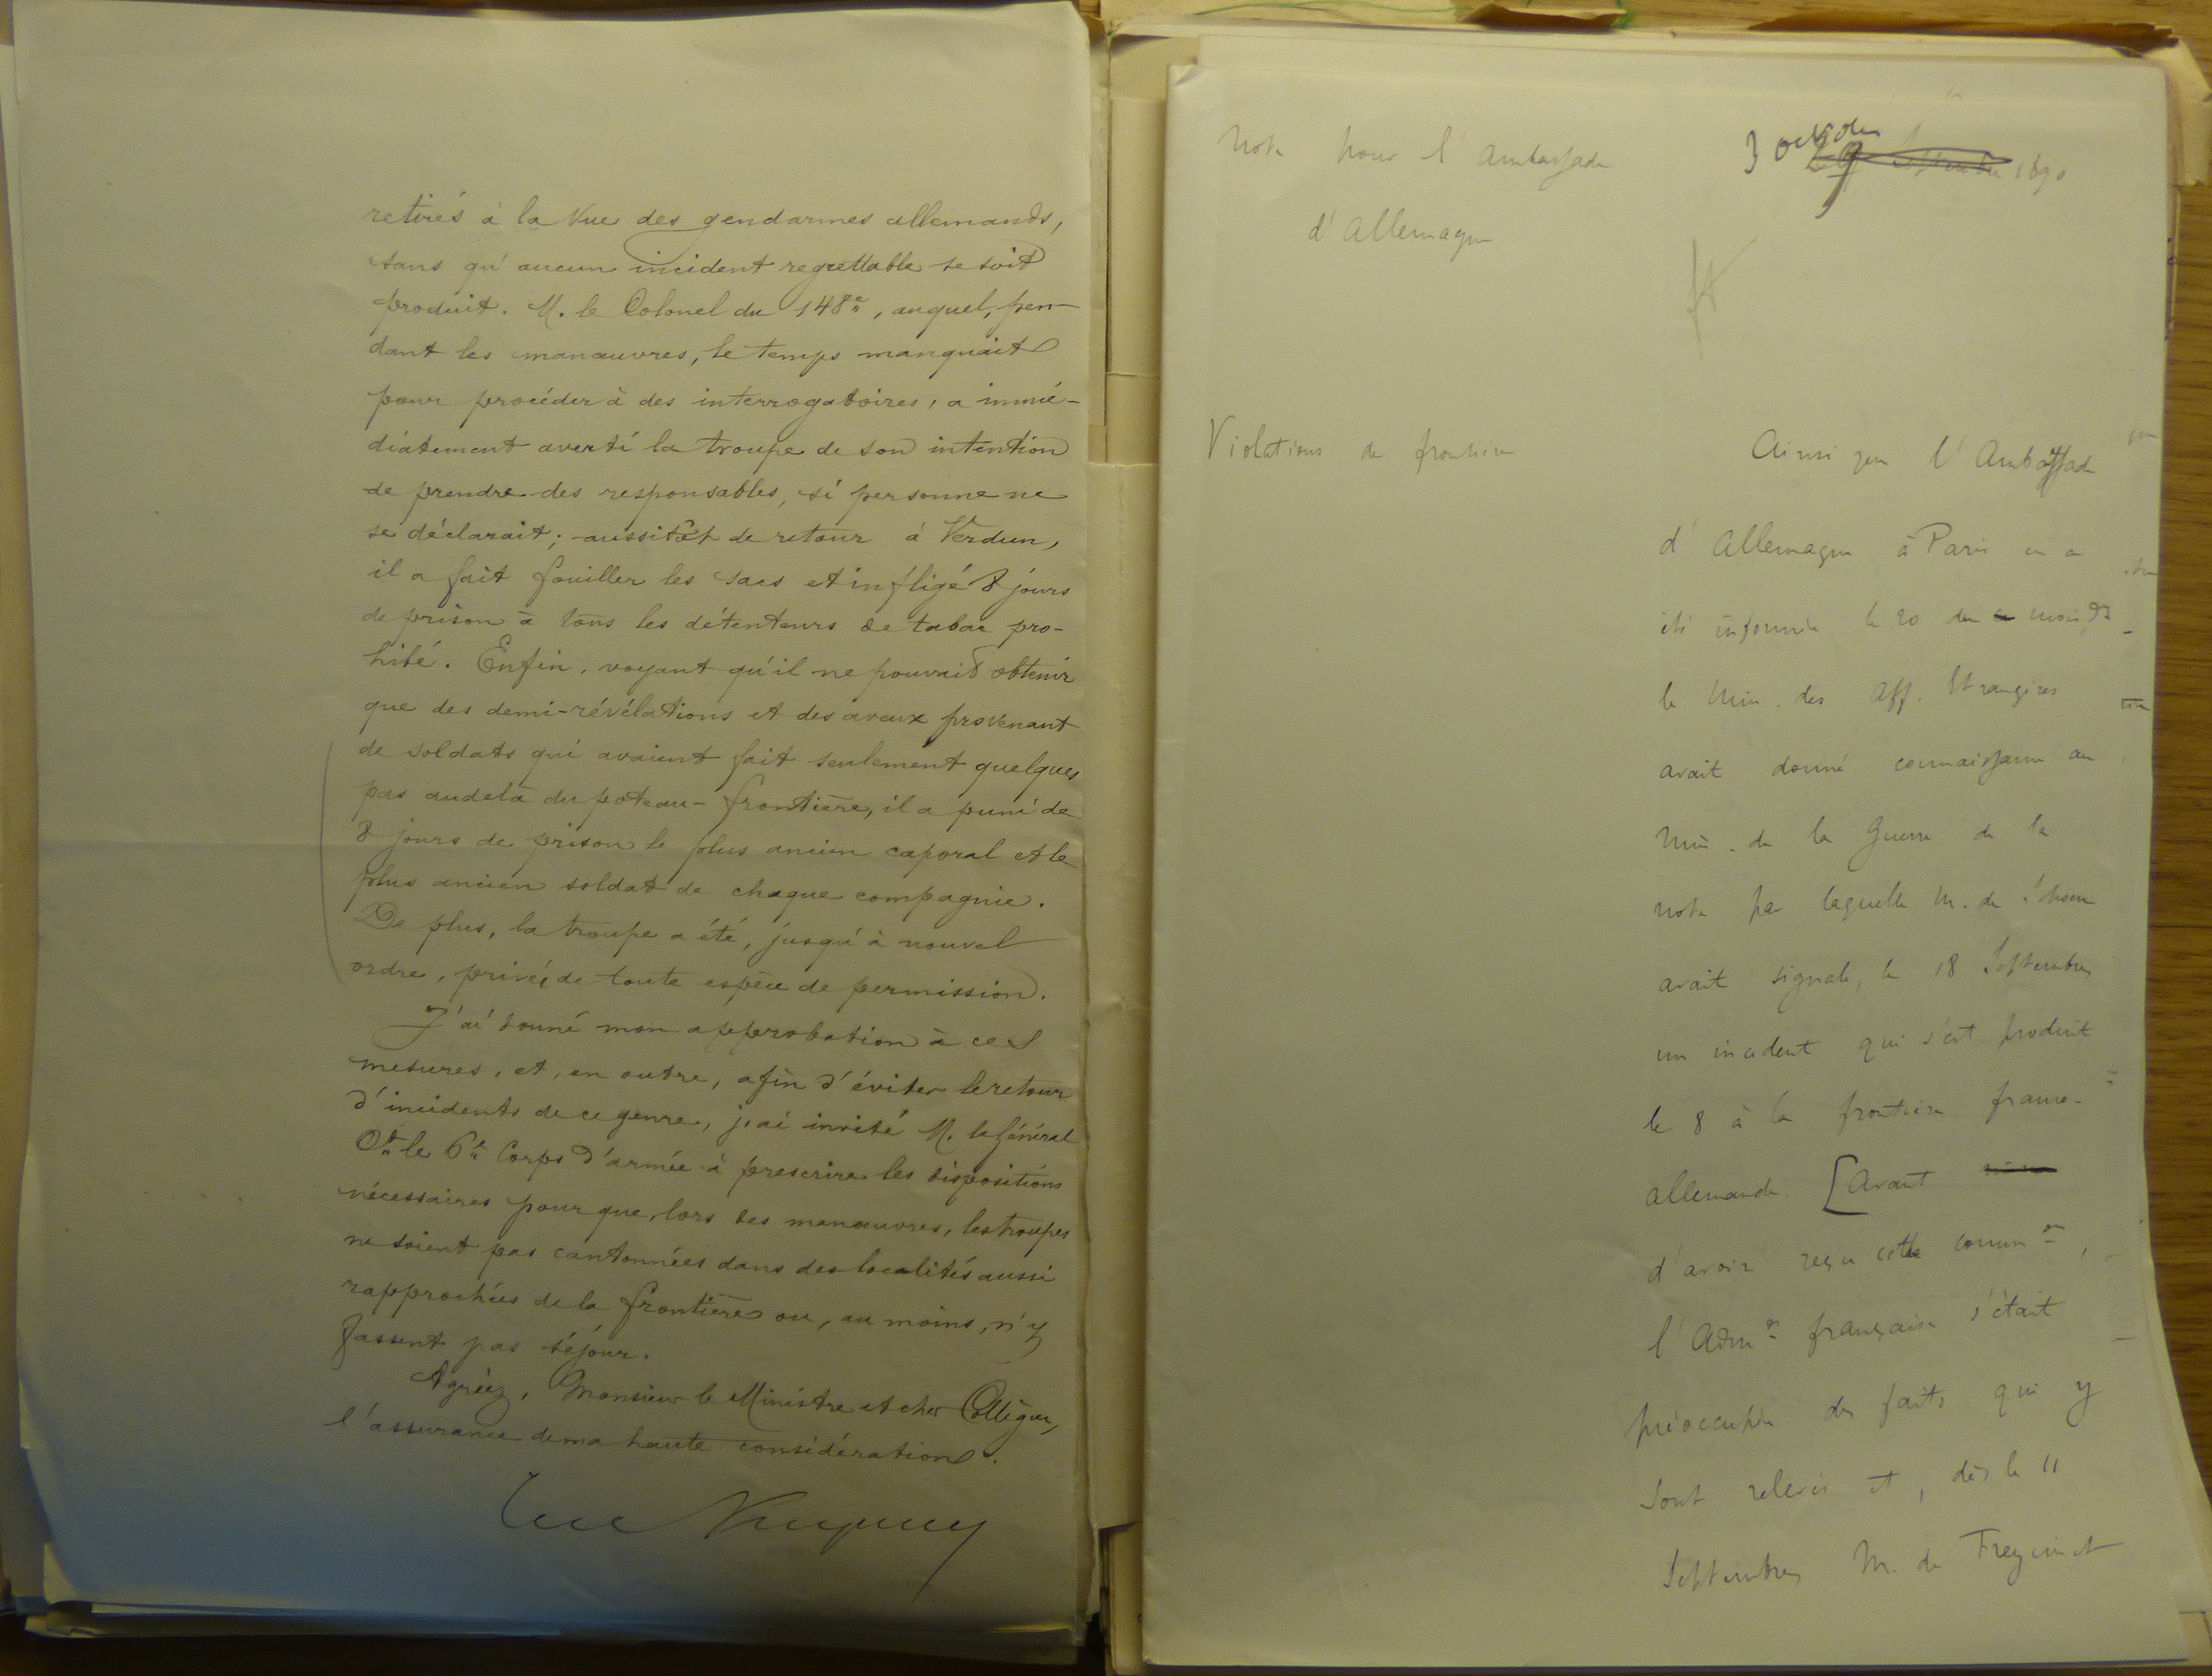 retirés à la vue des gendarmes allemands,
sans qu'aucun incident regrettable se soit
produit. M. le Colonel du 148e, auquel, pen-
dant les manœuvres, le temps manquait
pour procéder à des interrogatoires, a immé-
diatement averti la troupe de son intention
de prendre des responsables, si personne ne
se déclarait; aussitôt de retour à Verdun,
il a fait fouiller les sacs et infligé 8 jours
de prison à tous les détenteurs de tabac pro-
hibé. Enfin, voyant qu'il ne pouvait obtenir
que des demi-révélations et des aveux provenant
de soldats qui avaient fait seulement quelques
pas audelà du poteau-frontière, il a puni de
8 jours de prison le plus ancien caporal et le
plus ancien soldat de chaque compagnie.
De plus, la troupe a été, jusqu'à nouvel
ordre, privée de toute espèce de permission.
J'ai donné mon approbation à ces
mesures, et, en outre, afin d'éviter le retour
d'incidents de ce genre, j'ai invité M. le Général
Ct le 6e Corps d'armée à prescrire les dispositions
nécessaires pour que, lors des manœuvres, les troupes
ne soient pas cantonnées dans des localités aussi
rapprochées de la frontière ou, au moins, n'y
fassent pas séjour.
Agréez, Monsieur le Ministre et cher Collègue,
l'assurance de ma haute considération.
Note pour l'Ambassade
d'Allemagne
3 octobre
29 Septembre 1890
Violations de frontière
Ainsi que l'Ambassade
d'Allemagne à Paris en a
été informée le 20 du ce mois
le Min. des Aff. Etrangères
avait donné connaissance au
Min. de la Guerre de la
note par laquelle M. de Schoen
avait signalé, le 18 Septembre
un incident qui s'est produit
le 8 à la frontière franco-
allemande. [Avant
d'avoir reçu cette common,
l'Admon française s'était
préoccupée des faits qui y
sont relevés et, dès le 11
Septembre, M. de Freycinet